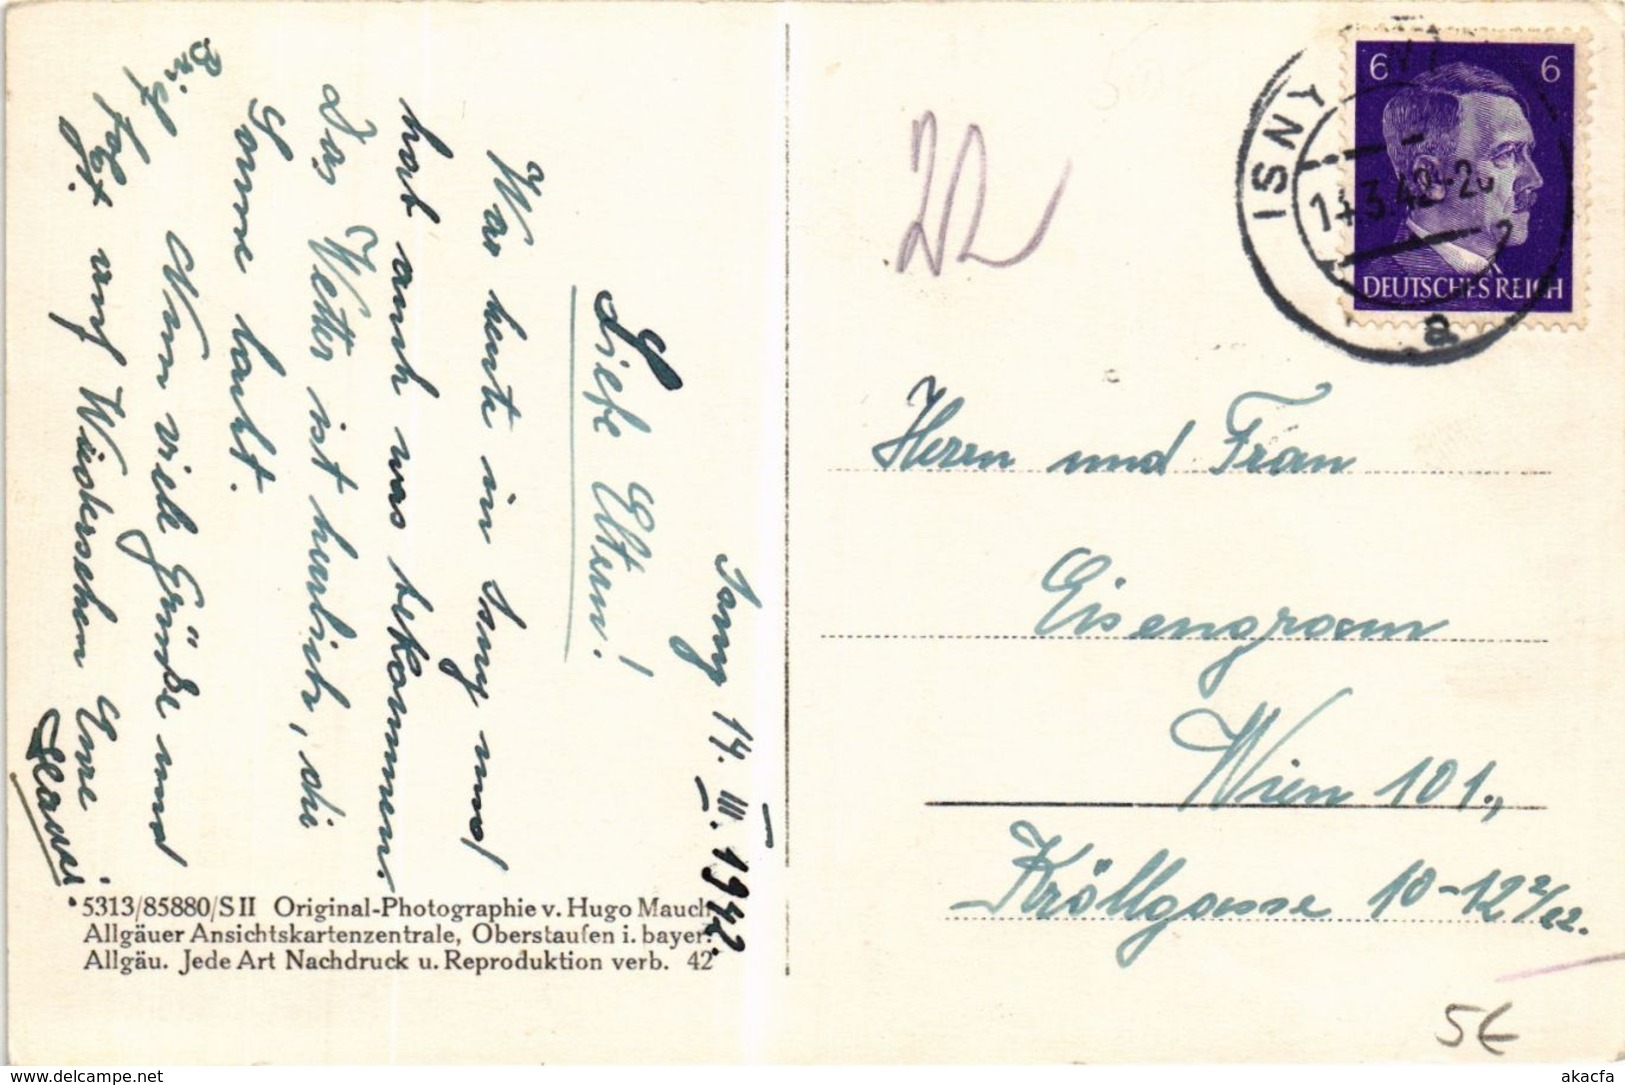 Isny 14. III. 1942.
Liebe Eltern!
War heute in Isny und
hab auch was bekommen.
Das Wetter ist herrlich, die
Sonne lacht.
Nun viele Grüße und
Brief folgt
auf Wiedersehen Eure
5313/85880/S II Original-Photographie v. Hugo Mauch
Allgäuer Ansichtskartenzentrale, Oberstaufen i. bayer.
Allgäu. Jede Art Nachdruck u. Reproduktion verb. 42
6 6
DEUTSCHES REICH
ISNY
14.3.42-20
a
Herrn und Frau
Eisengramm
Wien 101.,
Kröllgasse 10-12 2/22.
5€
delcampe.net
akacfa